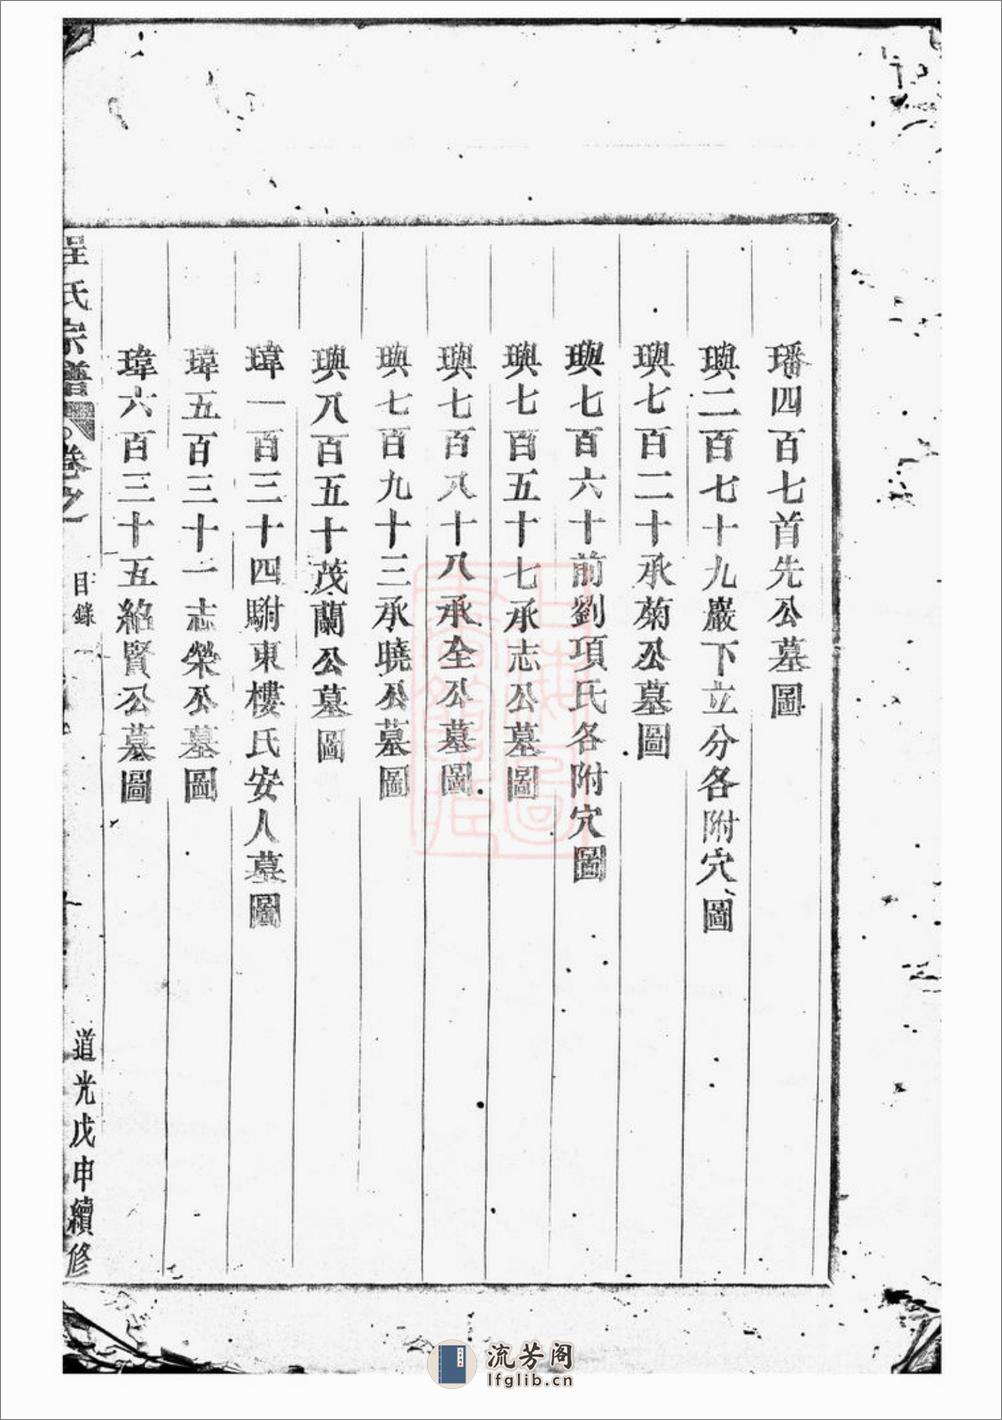 璠四百七首先公墓圖
璵二百七十九巖下立分各附穴圖
璵七百二十承菊公墓圖
璵七百六十前劉項氏各附穴圖
璵七百五十七承志公墓圖
璵七百八十八承全公墓圖
璵七百九十三承曉公墓圖
璵八百五十茂蘭公墓圖
瑋一百三十四駙東樓氏安人墓圖
瑋五百三十一志榮公墓圖
瑋六百三十五絡賢公墓圖
氏宗譜 卷之 目錄 一 道光戊申續修
流芳阁
lfglib.cn